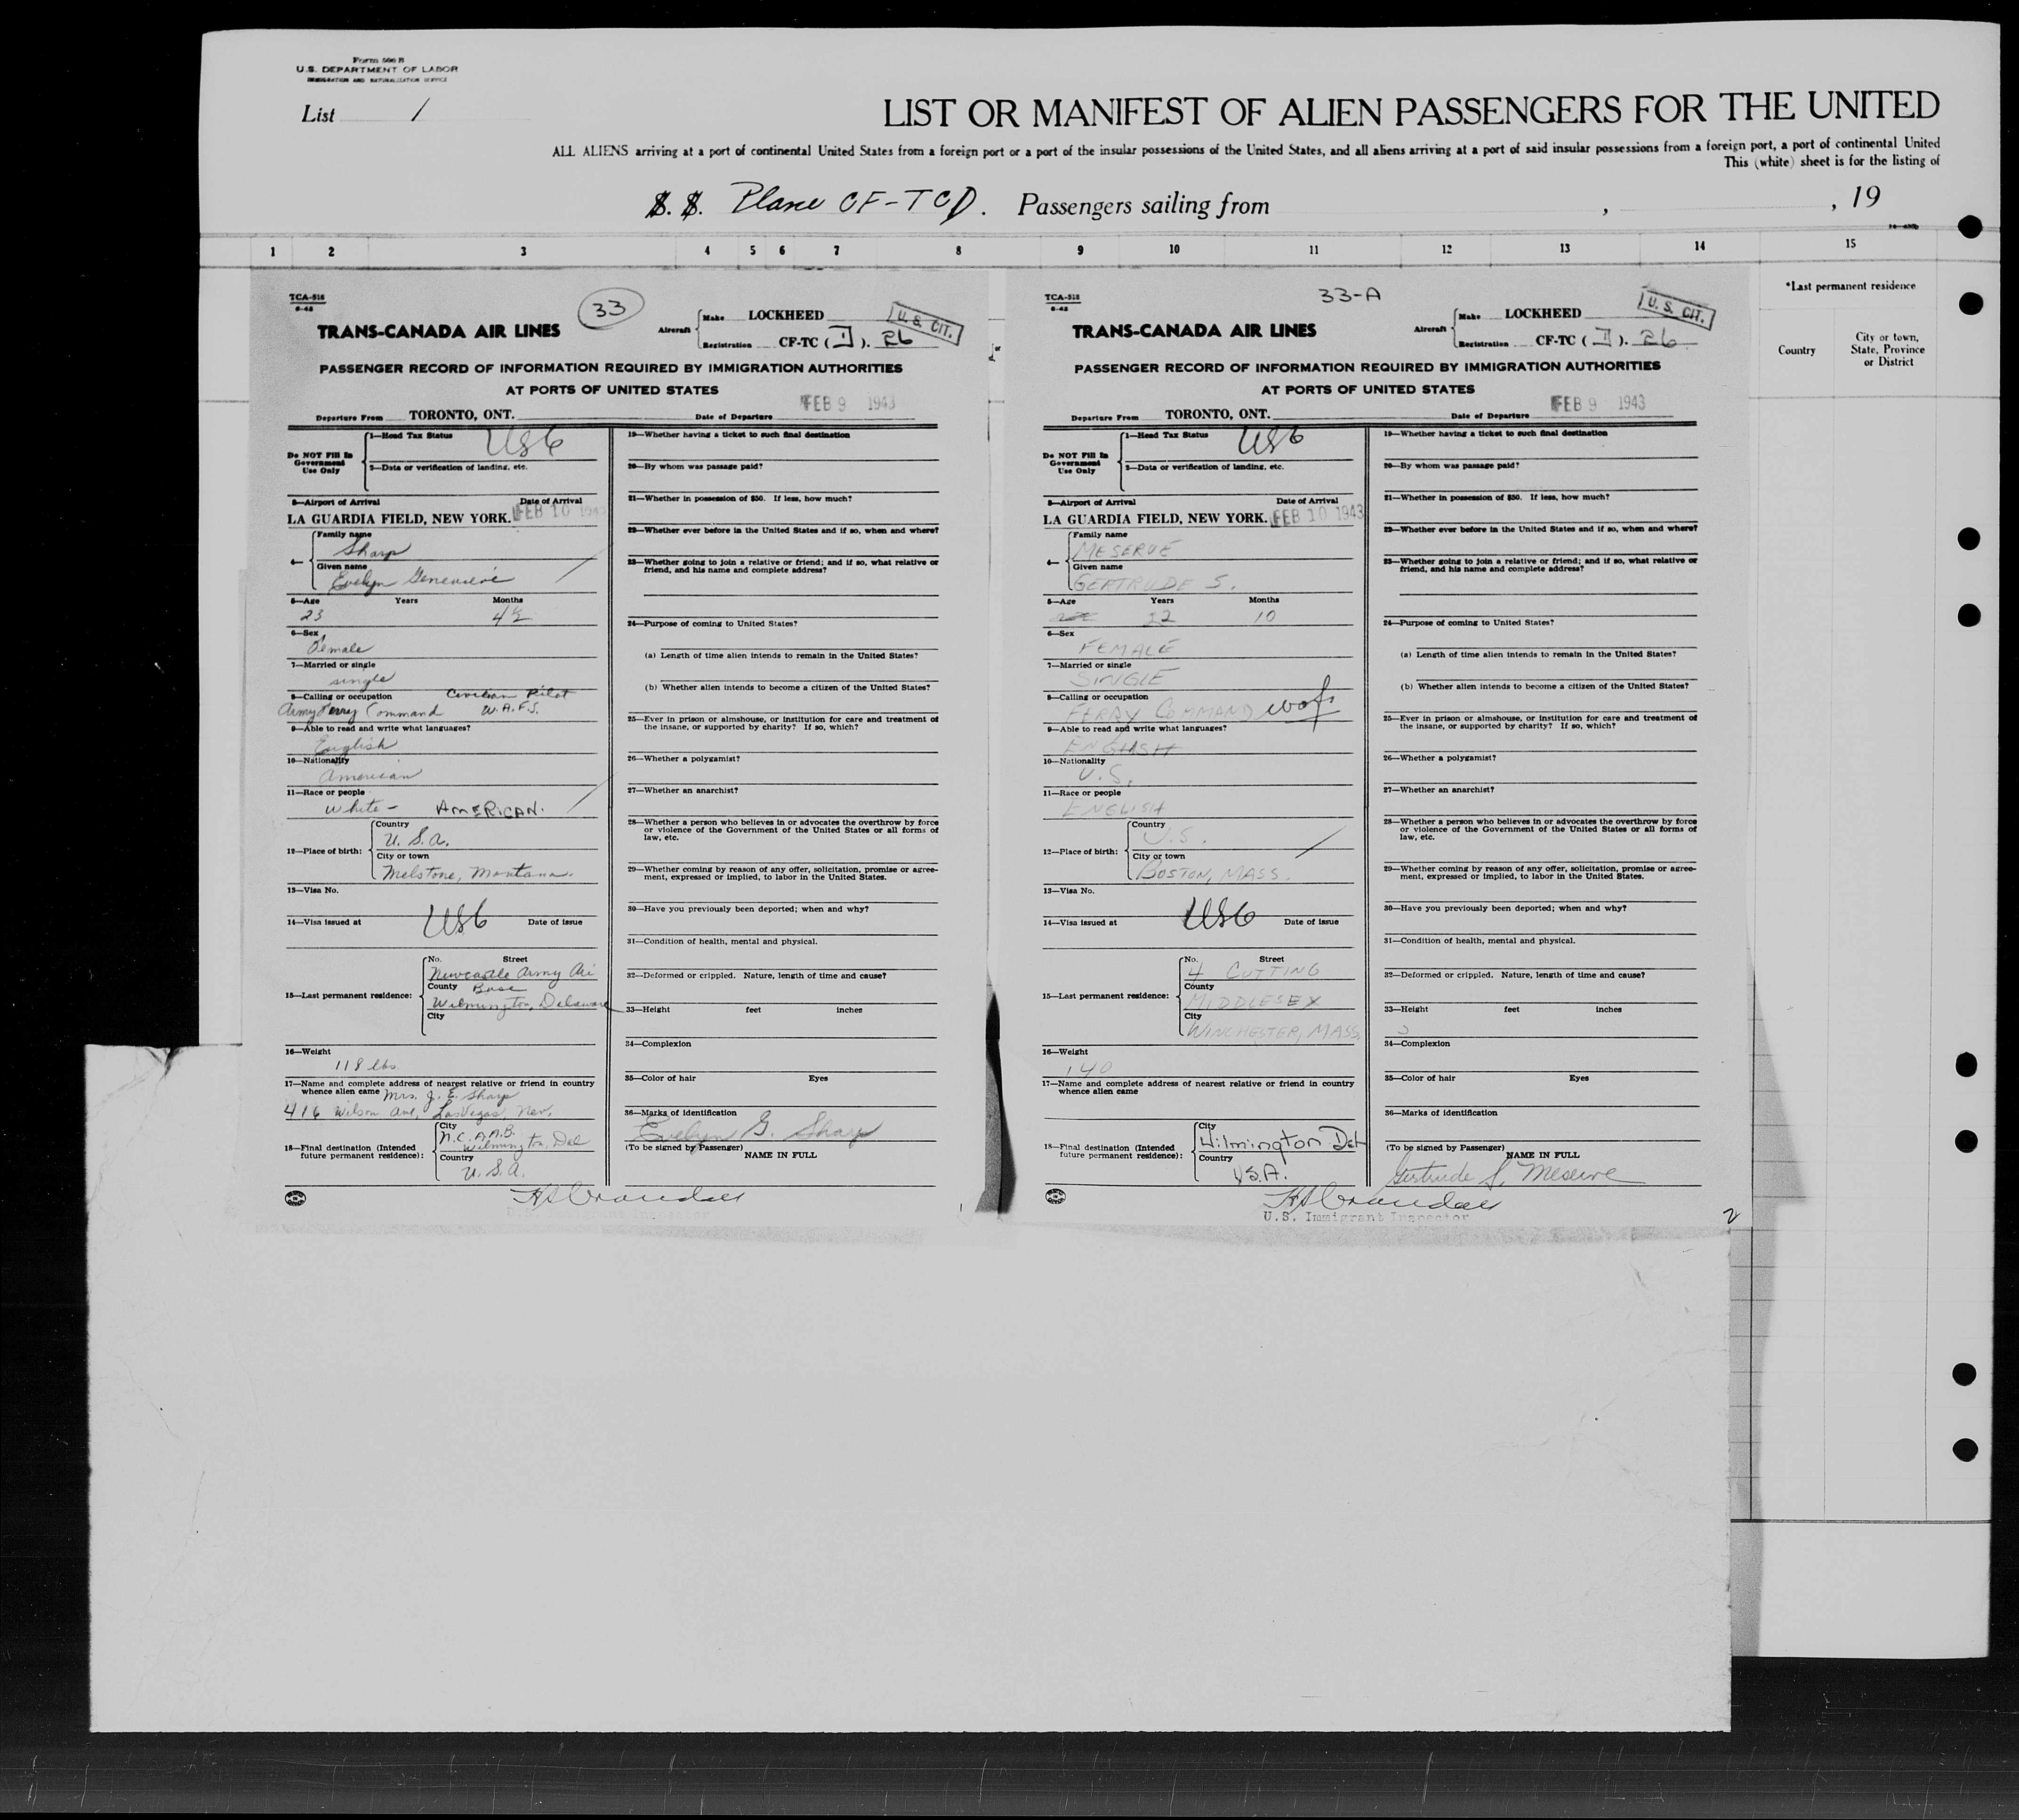 Form 500 B
U.S. DEPARTMENT OF LABOR
IMMIGRATION AND NATURALIZATION SERVICE
List 1
LIST OR MANIFEST OF ALIEN PASSENGERS FOR THE UNITED
ALL ALIENS arriving at a port of continental United States from a foreign port or a port of the insular possessions of the United States, and all aliens arriving at a port of said insular possessions from a foreign port, a port of continental United
This (white) sheet is for the listing of
S. S. Plane CF-TCD. Passengers sailing from , , 19
1 2 3 4 5 6 7 8 9 10 11 12 13 14 15
*Last permanent residence
Country
City or town, State, Province or District
TCA-518
6-42
33
TRANS-CANADA AIR LINES
Aircraft
Make LOCKHEED
Registration CF-TC ( D ). 26
U. S. CIT.
PASSENGER RECORD OF INFORMATION REQUIRED BY IMMIGRATION AUTHORITIES
AT PORTS OF UNITED STATES
Departure From TORONTO, ONT. Date of Departure FEB 9 1943
Do NOT Fill In
Government
Use Only
1—Head Tax Status USC
2—Data or verification of landing, etc.
3—Airport of Arrival Date of Arrival
LA GUARDIA FIELD, NEW YORK. FEB 10 1943
4—
Family name
Sharp
Given name
Evelyn Genevieve
5—Age Years Months
23 4½
6—Sex
Female
7—Married or single
single
8—Calling or occupation Civilian Pilot
Army Ferry Command W.A.F.S.
9—Able to read and write what languages?
English
10—Nationality
American
11—Race or people
White — AMERICAN.
12—Place of birth:
Country
U. S. A.
City or town
Melstone, Montana.
13—Visa No.
14—Visa issued at USC Date of issue
15—Last permanent residence:
No. Street
Newcastle Army Air
County Base
Wilmington, Delaware
City
16—Weight
118 lbs
17—Name and complete address of nearest relative or friend in country
whence alien came Mrs. J. E. Sharp
416 Wilson Ave, Las Vegas, Nev.
18—Final destination (Intended
future permanent residence):
City
N.C.A.A.B.
Wilmington, Del
Country
U. S. A.
19—Whether having a ticket to such final destination
20—By whom was passage paid?
21—Whether in possession of $50. If less, how much?
22—Whether ever before in the United States and if so, when and where?
23—Whether going to join a relative or friend; and if so, what relative or
friend, and his name and complete address?
24—Purpose of coming to United States?
(a) Length of time alien intends to remain in the United States?
(b) Whether alien intends to become a citizen of the United States?
25—Ever in prison or almshouse, or institution for care and treatment of
the insane, or supported by charity? If so, which?
26—Whether a polygamist?
27—Whether an anarchist?
28—Whether a person who believes in or advocates the overthrow by force
or violence of the Government of the United States or all forms of
law, etc.
29—Whether coming by reason of any offer, solicitation, promise or agree-
ment, expressed or implied, to labor in the United States.
30—Have you previously been deported; when and why?
31—Condition of health, mental and physical.
32—Deformed or crippled. Nature, length of time and cause?
33—Height feet inches
34—Complexion
35—Color of hair Eyes
36—Marks of identification
Evelyn G. Sharp
(To be signed by Passenger)
NAME IN FULL
TCA-518
6-42
33-A
TRANS-CANADA AIR LINES
Aircraft
Make LOCKHEED
Registration CF-TC ( D ). 26
U. S. CIT.
PASSENGER RECORD OF INFORMATION REQUIRED BY IMMIGRATION AUTHORITIES
AT PORTS OF UNITED STATES
Departure From TORONTO, ONT. Date of Departure FEB 9 1943
Do NOT Fill In
Government
Use Only
1—Head Tax Status USC
2—Data or verification of landing, etc.
3—Airport of Arrival Date of Arrival
LA GUARDIA FIELD, NEW YORK. FEB 10 1943
4—
Family name
MESERVE
Given name
GERTRUDE S.
5—Age Years Months
22 10
6—Sex
FEMALE
7—Married or single
SINGLE
8—Calling or occupation
FERRY COMMAND wafs
9—Able to read and write what languages?
ENGLISH
10—Nationality
U.S.
11—Race or people
ENGLISH
12—Place of birth:
Country
U.S.
City or town
BOSTON, MASS.
13—Visa No.
14—Visa issued at USC Date of issue
15—Last permanent residence:
No. Street
4 CUTTING
County
MIDDLESEX
City
WINCHESTER, MASS.
16—Weight
140
17—Name and complete address of nearest relative or friend in country
whence alien came
18—Final destination (Intended
future permanent residence):
City
Wilmington Del
Country
USA.
19—Whether having a ticket to such final destination
20—By whom was passage paid?
21—Whether in possession of $50. If less, how much?
22—Whether ever before in the United States and if so, when and where?
23—Whether going to join a relative or friend; and if so, what relative or
friend, and his name and complete address?
24—Purpose of coming to United States?
(a) Length of time alien intends to remain in the United States?
(b) Whether alien intends to become a citizen of the United States?
25—Ever in prison or almshouse, or institution for care and treatment of
the insane, or supported by charity? If so, which?
26—Whether a polygamist?
27—Whether an anarchist?
28—Whether a person who believes in or advocates the overthrow by force
or violence of the Government of the United States or all forms of
law, etc.
29—Whether coming by reason of any offer, solicitation, promise or agree-
ment, expressed or implied, to labor in the United States.
30—Have you previously been deported; when and why?
31—Condition of health, mental and physical.
32—Deformed or crippled. Nature, length of time and cause?
33—Height feet inches
34—Complexion
35—Color of hair Eyes
36—Marks of identification
(To be signed by Passenger)
NAME IN FULL
Gertrude S. Meserve
U.S. Immigrant Inspector
2